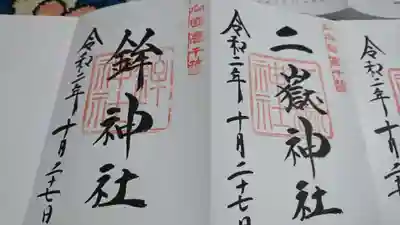 鉾神社
令和二年十月二十七日
二嶽神社
令和二年十月二十七日
令和二年
十月二十七日